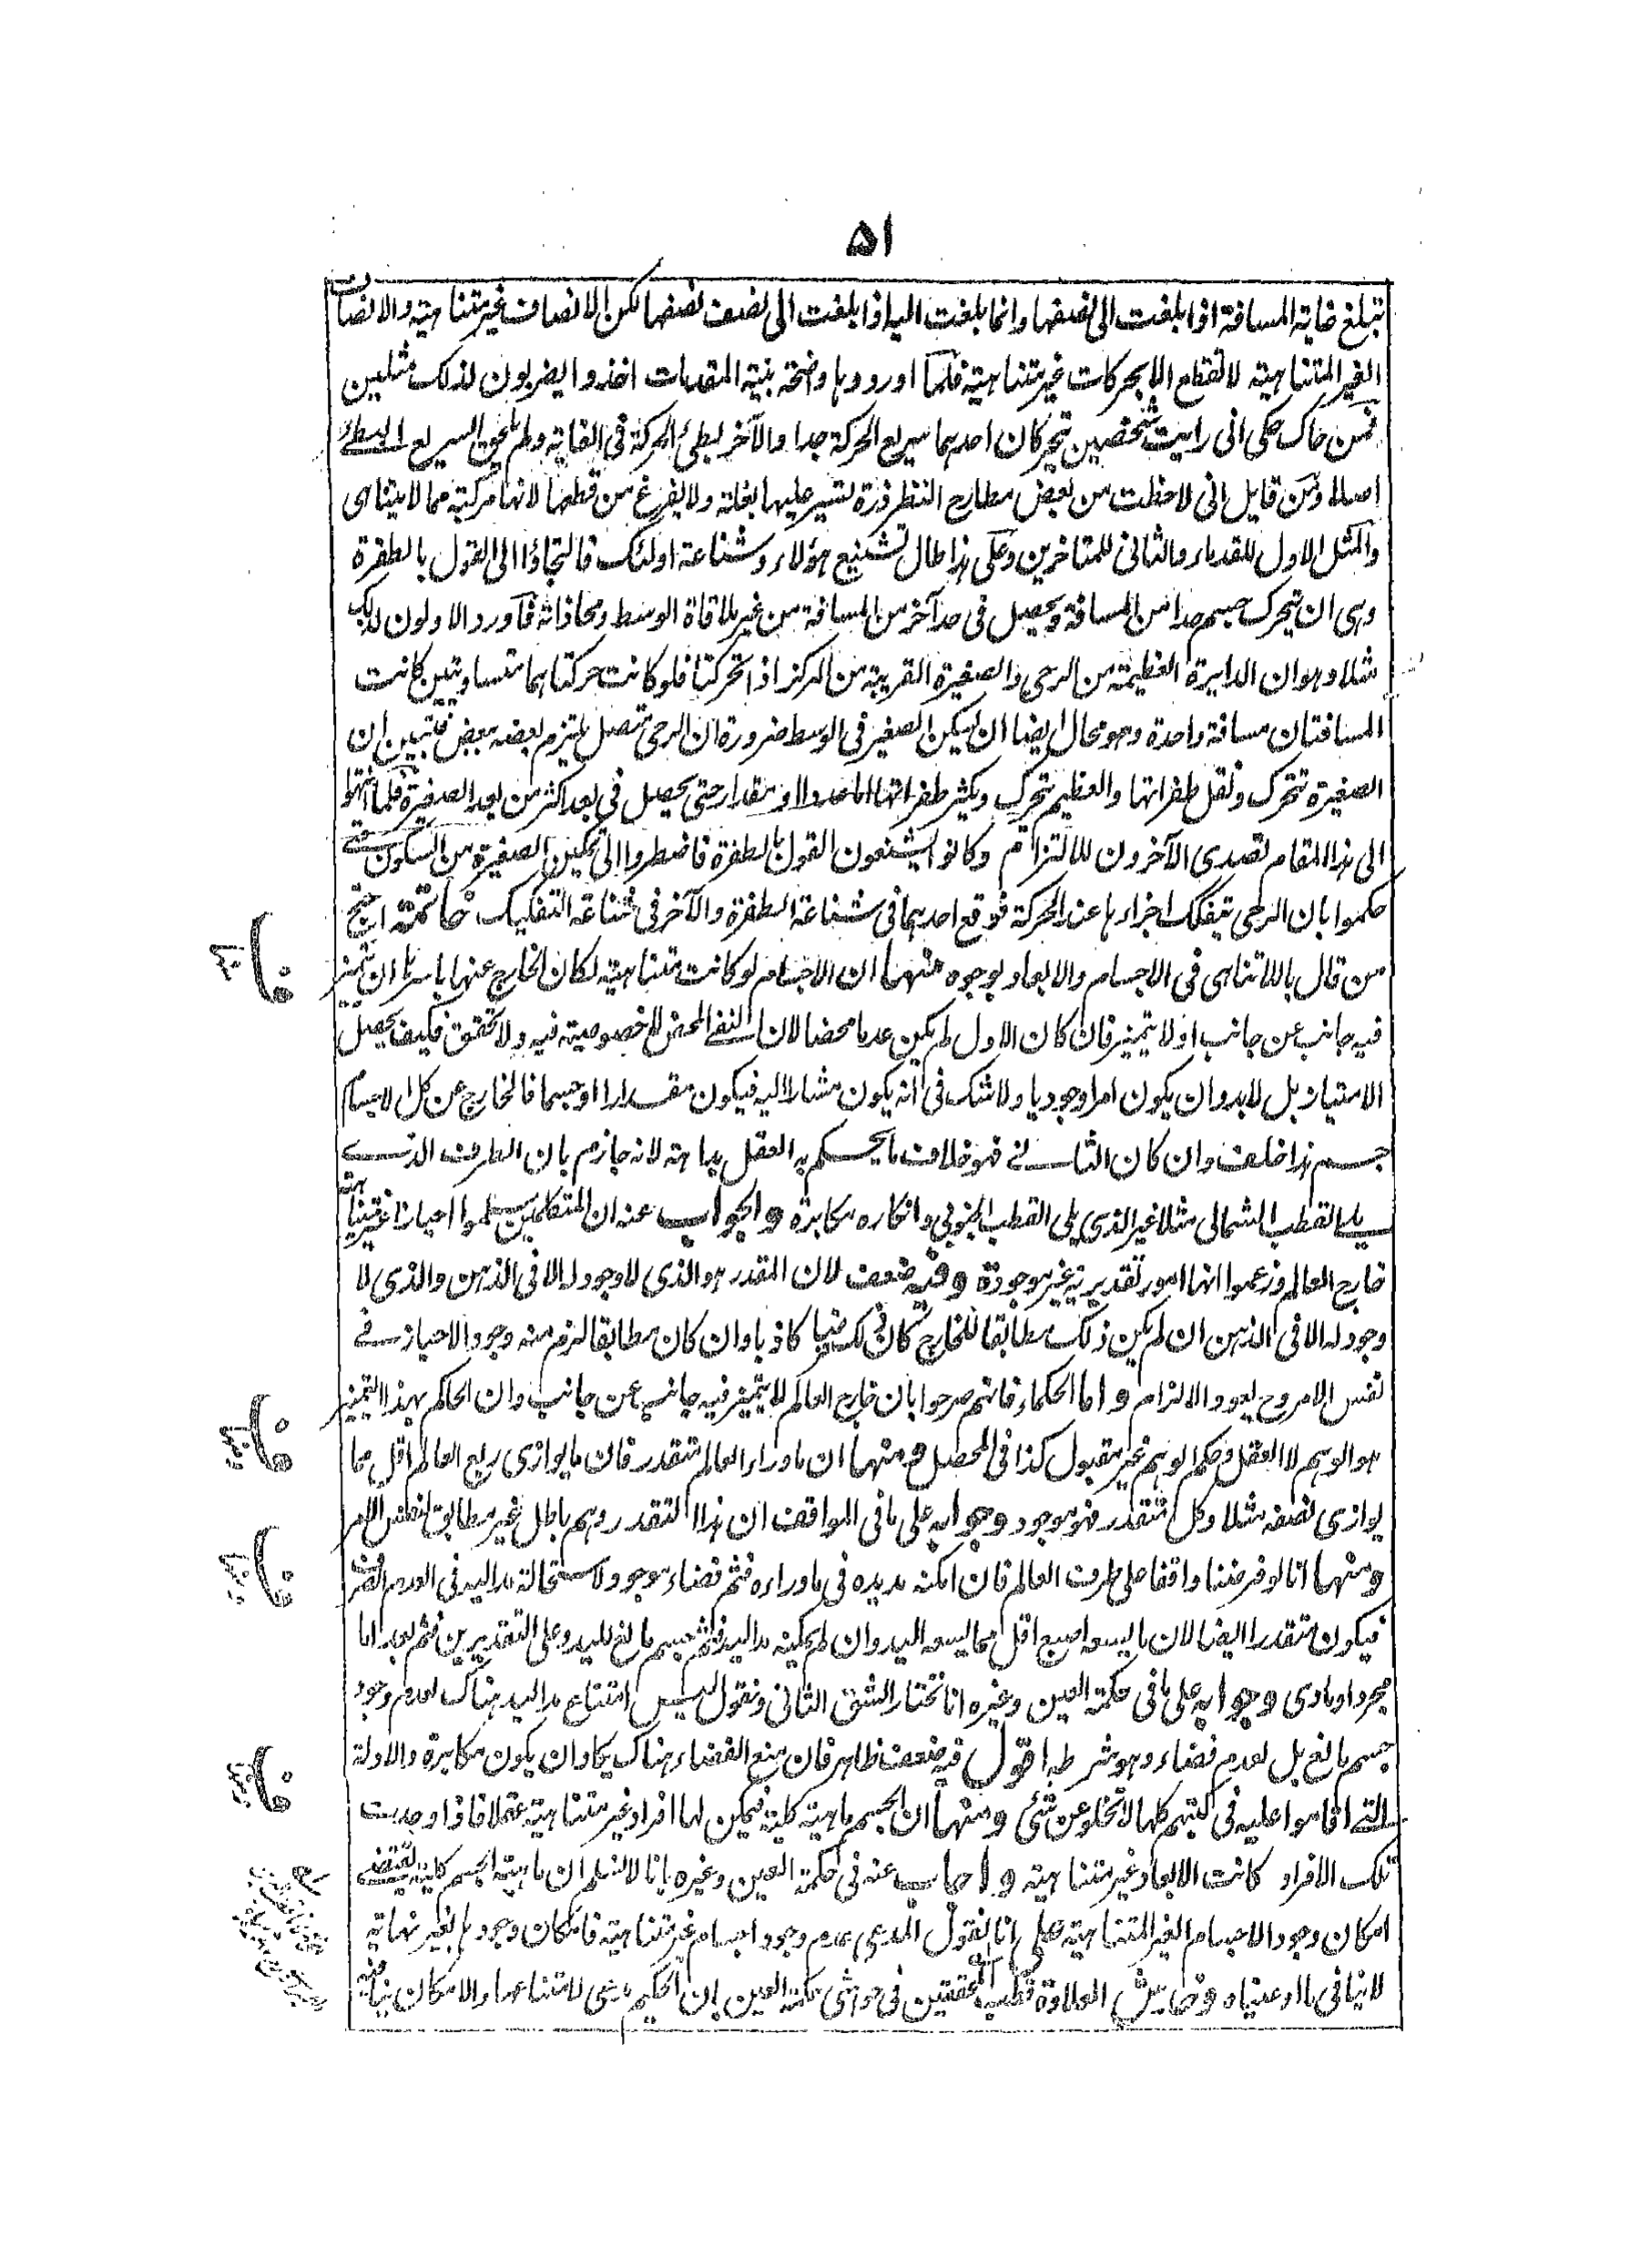 ۵۱
تبلغ غاية المسافة اذا بلغت الى نصفها وانما بلغت اليه اذا بلغت الى نصف نصفها لكن الانصاف غير متناهية والانصاف
الغير المتناهية لا تقطع الا بحركات غير متناهية فلما اوردوها واضحة بنية المقدمات اخذوا يضربون لذلك مثلين
فمن حاك حكى انى رايت شخصين تحركان احدهما سريع الحركة جدا والآخر بطئ الحركة فى الغاية ولم يلحق السريع البطئ
اصلا ومن قايل انى لاحظت من بعض مطارح النظر ذرة تسير عليها بغلة ولا يفرغ من قطعها لانها مركبة مما لا يتناهى
والمثل الاول للقدماء والثانى للمتاخرين وعلى هذا طال تشنيع هؤلاء وشناعة اولئك فالتجاؤا الى القول بالطفرة
وهى ان تحرك جسم حدا من المسافة ويحصل فى حد آخر من المسافة من غير ملاقاة الوسط ومحاذاته فاورد الاولون لذلك
مثلا وهو ان الدايرة العظيمة من الرحى والصغيرة القريبة من المركز اذا تحركتا فلو كانت حركتاهما متساويتين كانت
المسافتان مسافة واحدة وهو محال ايضا ان يكن الصغير فى الوسط ضرورة ان الرحى متصل يلتزم بعضه ببعض فتبين ان
الصغيرة تتحرك وتقل طفراتها والعظيم تحرك ويكثر طفراتها حتى يحصل فى بعد اكثر من بعد الصغيرة فلما انتهوا
الى هذا المقام تصدى الآخرون للالتزام وكانوا يشنعون القول بالطفرة فاضطروا الى تمكين الصغيرة من السكون حتى
حكموا بان الرحى تتفكك اجزاءها عند الحركة فوقع احدهما فى شناعة الطفرة والآخر فى شناعة التفكيك خاتمة احتج
من قال باللاتناهى فى الاجسام والابعاد بوجوه منها ان الاجسام لو كانت متناهية لكان الخارج عنها باسرها ان تميز
فيه جانب عن جانب او لا يتميز فان كان الاول لم يكن عدما محضا لان النفى المحض لا خصوصية فيه ولا تحقق فكيف يحصل
الامتياز بل لا بد وان يكون امرا وجوديا ولا شك فى انه يكون مشارا اليه فيكون مقدارا او جسما فالخارج عن كل الاجسام
جسم هذا خلف وان كان الثانى فهو خلاف ما يحكم به العقل بداهة لانه جازم بان الطرف الذى
يلى القطب الشمالى مثلا غير الذى يلى القطب الجنوبى وانكاره مكابرة والجواب عنه ان المتكلمين سلموا احيازا غير متناهية
خارج العالم وزعموا انها امور تقديرية غير موجودة وفيه ضعف لان المقدر هو الذى لا وجود له الا فى الذهن والذى لا
وجود له الا فى الذهن ان لم يكن ذلك مطابقا للخارج كان ذلك فرضيا كاذبا وان كان مطابقا لزم منه وجود الاحياز فى
نفس الامر وح يعود الالزام واما الحكماء فانهم صرحوا بان خارج العالم لا يتميز فيه جانب عن جانب وان الحاكم بهذا التميز
هو الوهم لا العقل وحكم الوهم غير مقبول كذا فى المحصل ومنها ان ما وراء العالم متقدر فان ما يوازى ربع العالم اقل مما
يوازى نصفه مثلا وكل متقدر فهو موجود وجوابه على ما فى المواقف ان هذا التقدر وهم باطل غير مطابق لنفس الامر
ومنها انا لو فرضنا واقفا على طرف العالم فان امكنه مد يده فى ما وراءه فثم فضاء موجود لاستحالة مد اليد فى العدم الصرف
فيكون متقدرا ايضا لان ما يسعه اصبع اقل مما يسعه اليد وان لم يمكنه مد اليد فثم جسم مانع لليد وعلى التقديرين فثم بعد اما
مجرد او مادى وجوابه على ما فى حكمة العين وغيره انا نختار الشق الثانى ونقول ليس امتناع مد اليد هناك لعدم وجود
جسم مانع بل لعدم فضاء وهو شرطه اقول فيه ضعف ظاهر فان منع الفضاء هناك يكاد ان يكون مكابرة والادلة
التى اقاموا عليه فى كتبهم كلها لا تخلو عن شئى ومنها ان الجسم ماهية كلية فيمكن لها افراد غير متناهية عقلا فاذا وجدت
تلك الافراد كانت الابعاد غير متناهية واجاب عنه فى حكمة العين وغيره بانا لا نسلم ان ماهية الجسم كلية تقتضى
امكان وجود الاجسام الغير المتناهية على انا نقول المدعى عدم وجود اجسام غير متناهية فامكان وجودها بغير نهاية
لا ينافى ما ادعيناه العلاوة قطب المحققين فى حواشى حكمة العين بان الحكيم يدعى لامتناعها والامكان ينافيه